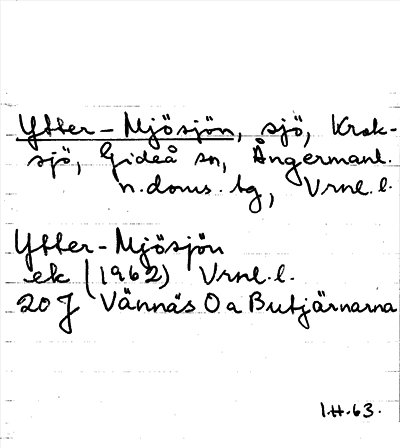 Ytter-Mjösjön, sjö, Krok-
sjö, Gideå sn, Ångermanl.
n.doms. bg, Vrnl.l.
Ytter-Mjösjön
ek (1962) Vrnl.l.
20 J Vännäs 0 a Butjärnarna
I.H.63.